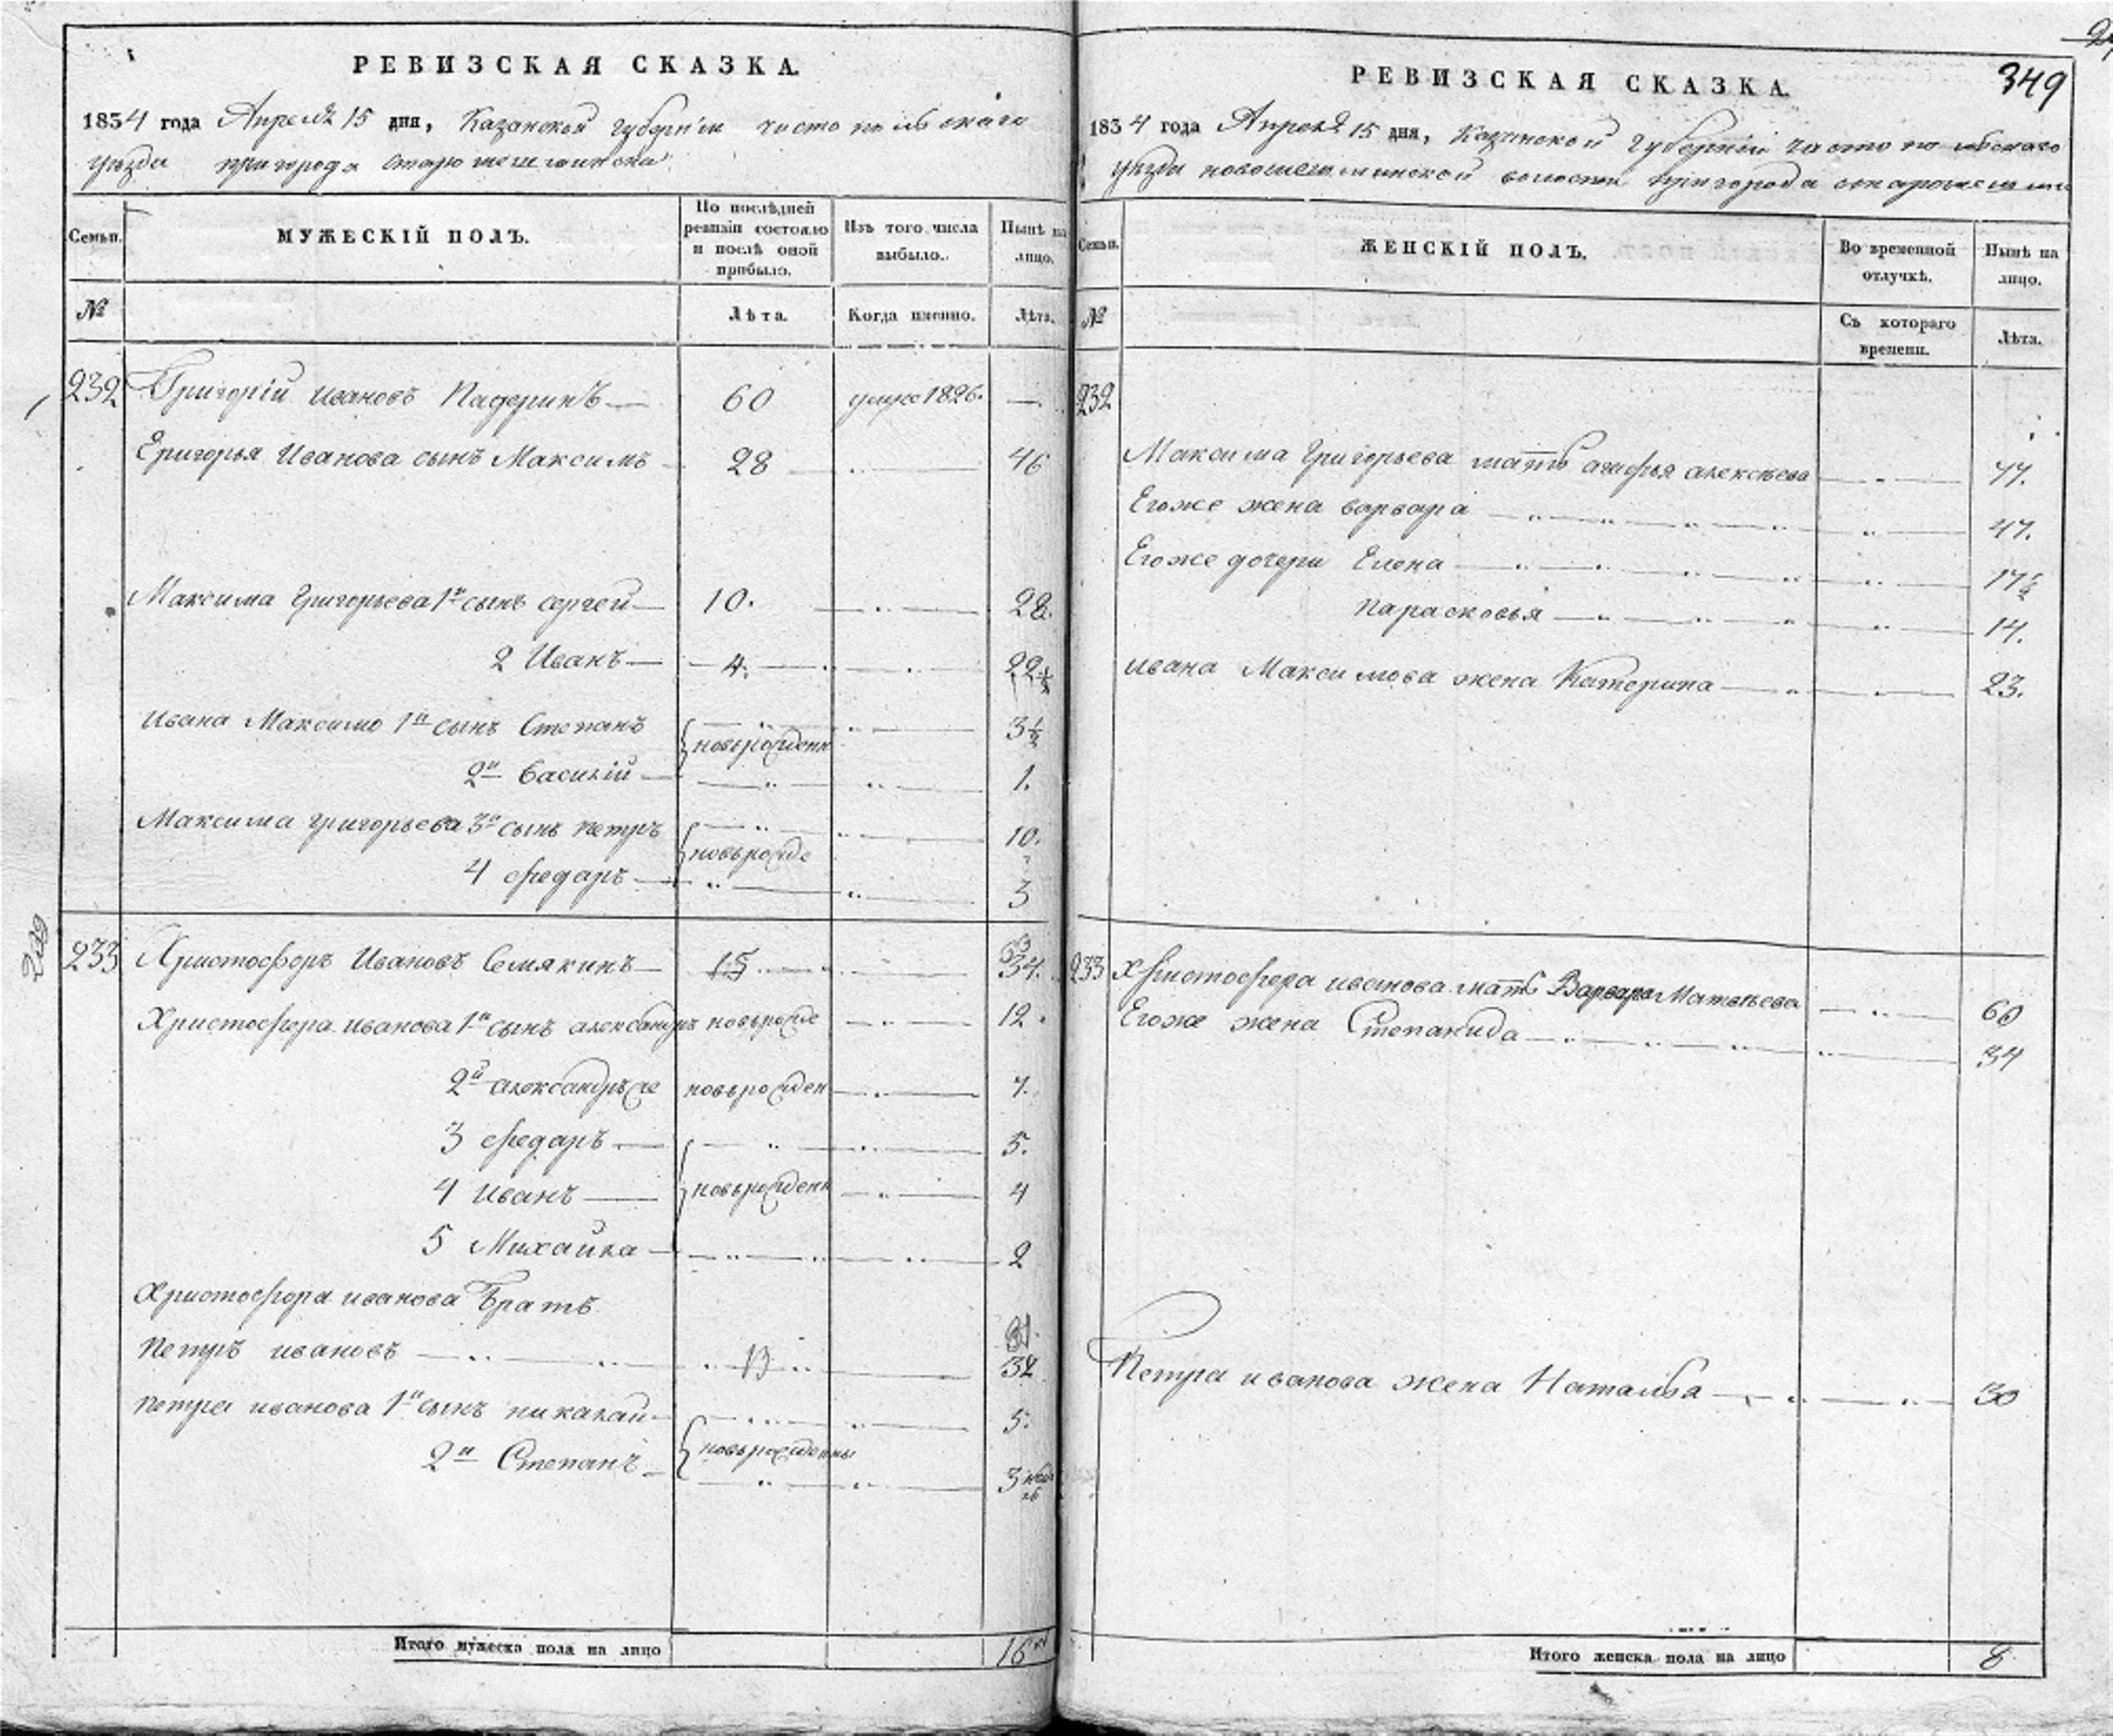 РЕВИЗСКАЯ СКАЗКА.
1834 года Апреля 15 дня, Казанской губернии чистопольскаго
уезда пригорода старошешминска
Семьи.
МУЖЕСКІЙ ПОЛЪ.
По послѣдней ревизіи состояло и послѣ оной прибыло.
Изъ того числа выбыло.
Нынѣ на лицо.
№
Лѣта.
Когда именно.
Лѣта.
232 Григорій ивановъ Падеринъ 60 умре 1826.
Григорья Иванова сынъ Максимъ 28 46
Максима Григорьева 1й сынъ сергей 10. 28.
2 Иванъ 4. 22
Ивана Максимо 1й сынъ Степанъ 3½
новърожденн
2й василій 1.
Максима григорьева 3й сынъ петръ 10.
новърожде
4 федаръ 3
233 Христофоръ Ивановъ Семякинъ 15 34.
Христофора иванова 1й сынъ александръ новърожде 12.
2й александръ же новърожден 7.
3 федаръ 5.
4 иванъ новърожденн 4
5 Михайла 2
Христофора иванова братъ
петръ ивановъ 13 32
петра иванова 1й сынъ никалай 5.
новърожденны
2й Степанъ 3
Итого мужеска пола на лицо 16
349
РЕВИЗСКАЯ СКАЗКА.
1834 года Апреля 15 дня, Казанской губерніи чистопольскаго
уезда новошешминской волости пригорода старошешми
Семьи.
ЖЕНСКІЙ ПОЛЪ.
Во временной отлучкѣ.
Нынѣ на лицо.
№
Съ котораго времени.
Лѣта.
232
Максима Григорьева мать агафья алексеева 77.
Егоже жена варвара 47.
Егоже дочери Елена 17½
парасковья 14.
ивана Максимова жена Катерина 23.
233 Христофора иванова мать Варвара Матвеева 60
Егоже жена Степанида 34
Петра иванова жена Наталья 30
Итого женска пола на лицо 8